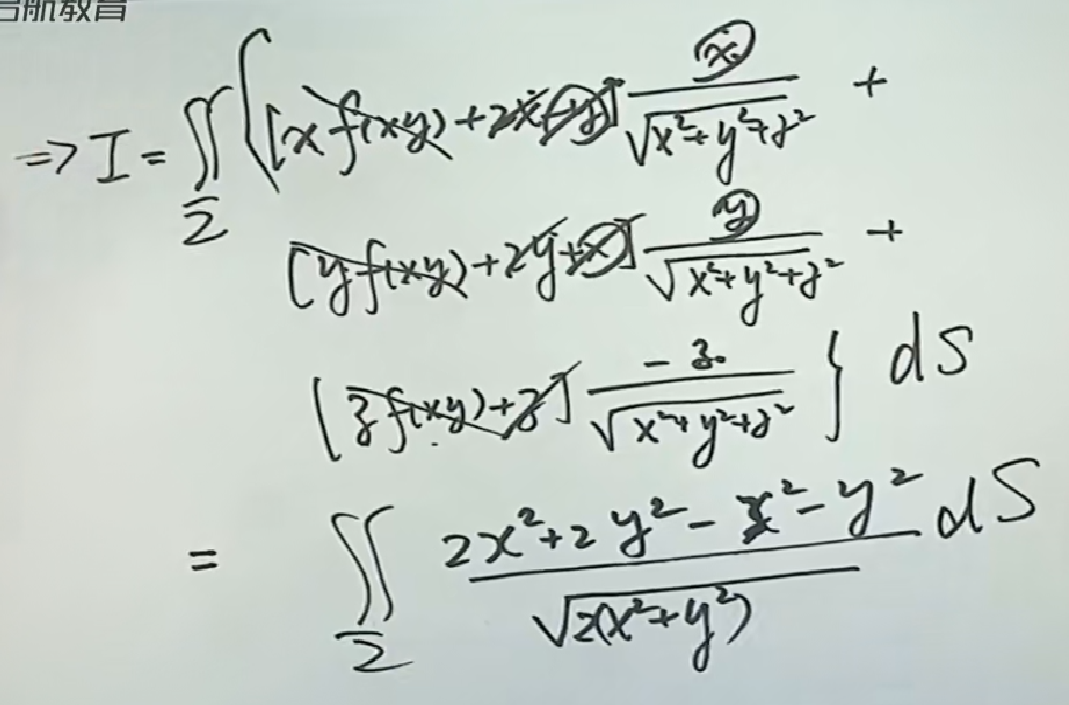 启航教育
⇒ I = ∬_Σ { [x f(xy) + 2x - y] x/√(x²+y²+z²) +
[y f(xy) + 2y + x] y/√(x²+y²+z²) +
[z f(xy) + z] -z/√(x²+y²+z²) } dS
= ∬_Σ (2x²+2y²-x²-y²)/√(2(x²+y²)) dS